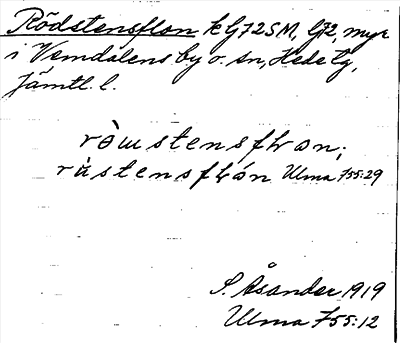 Rödstensflon k G72SM, G72, myr
i Vemdalens by o. sn, Hede tg,
Jämtl. l.
ròɯstensfɫꙍn;
rùstensfɫón Ulma 755:29
S. Åsander 1919
Ulma 755:12